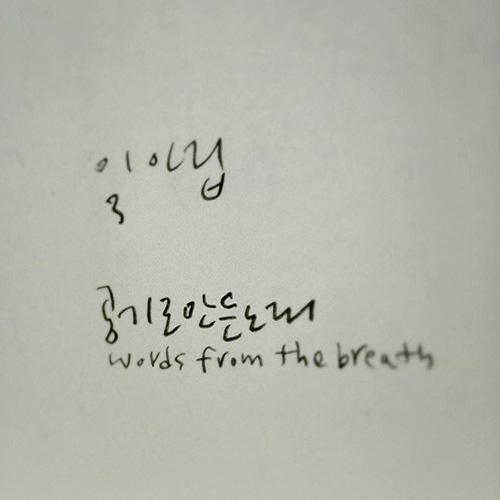 일
공기로만든노래
words from the breath